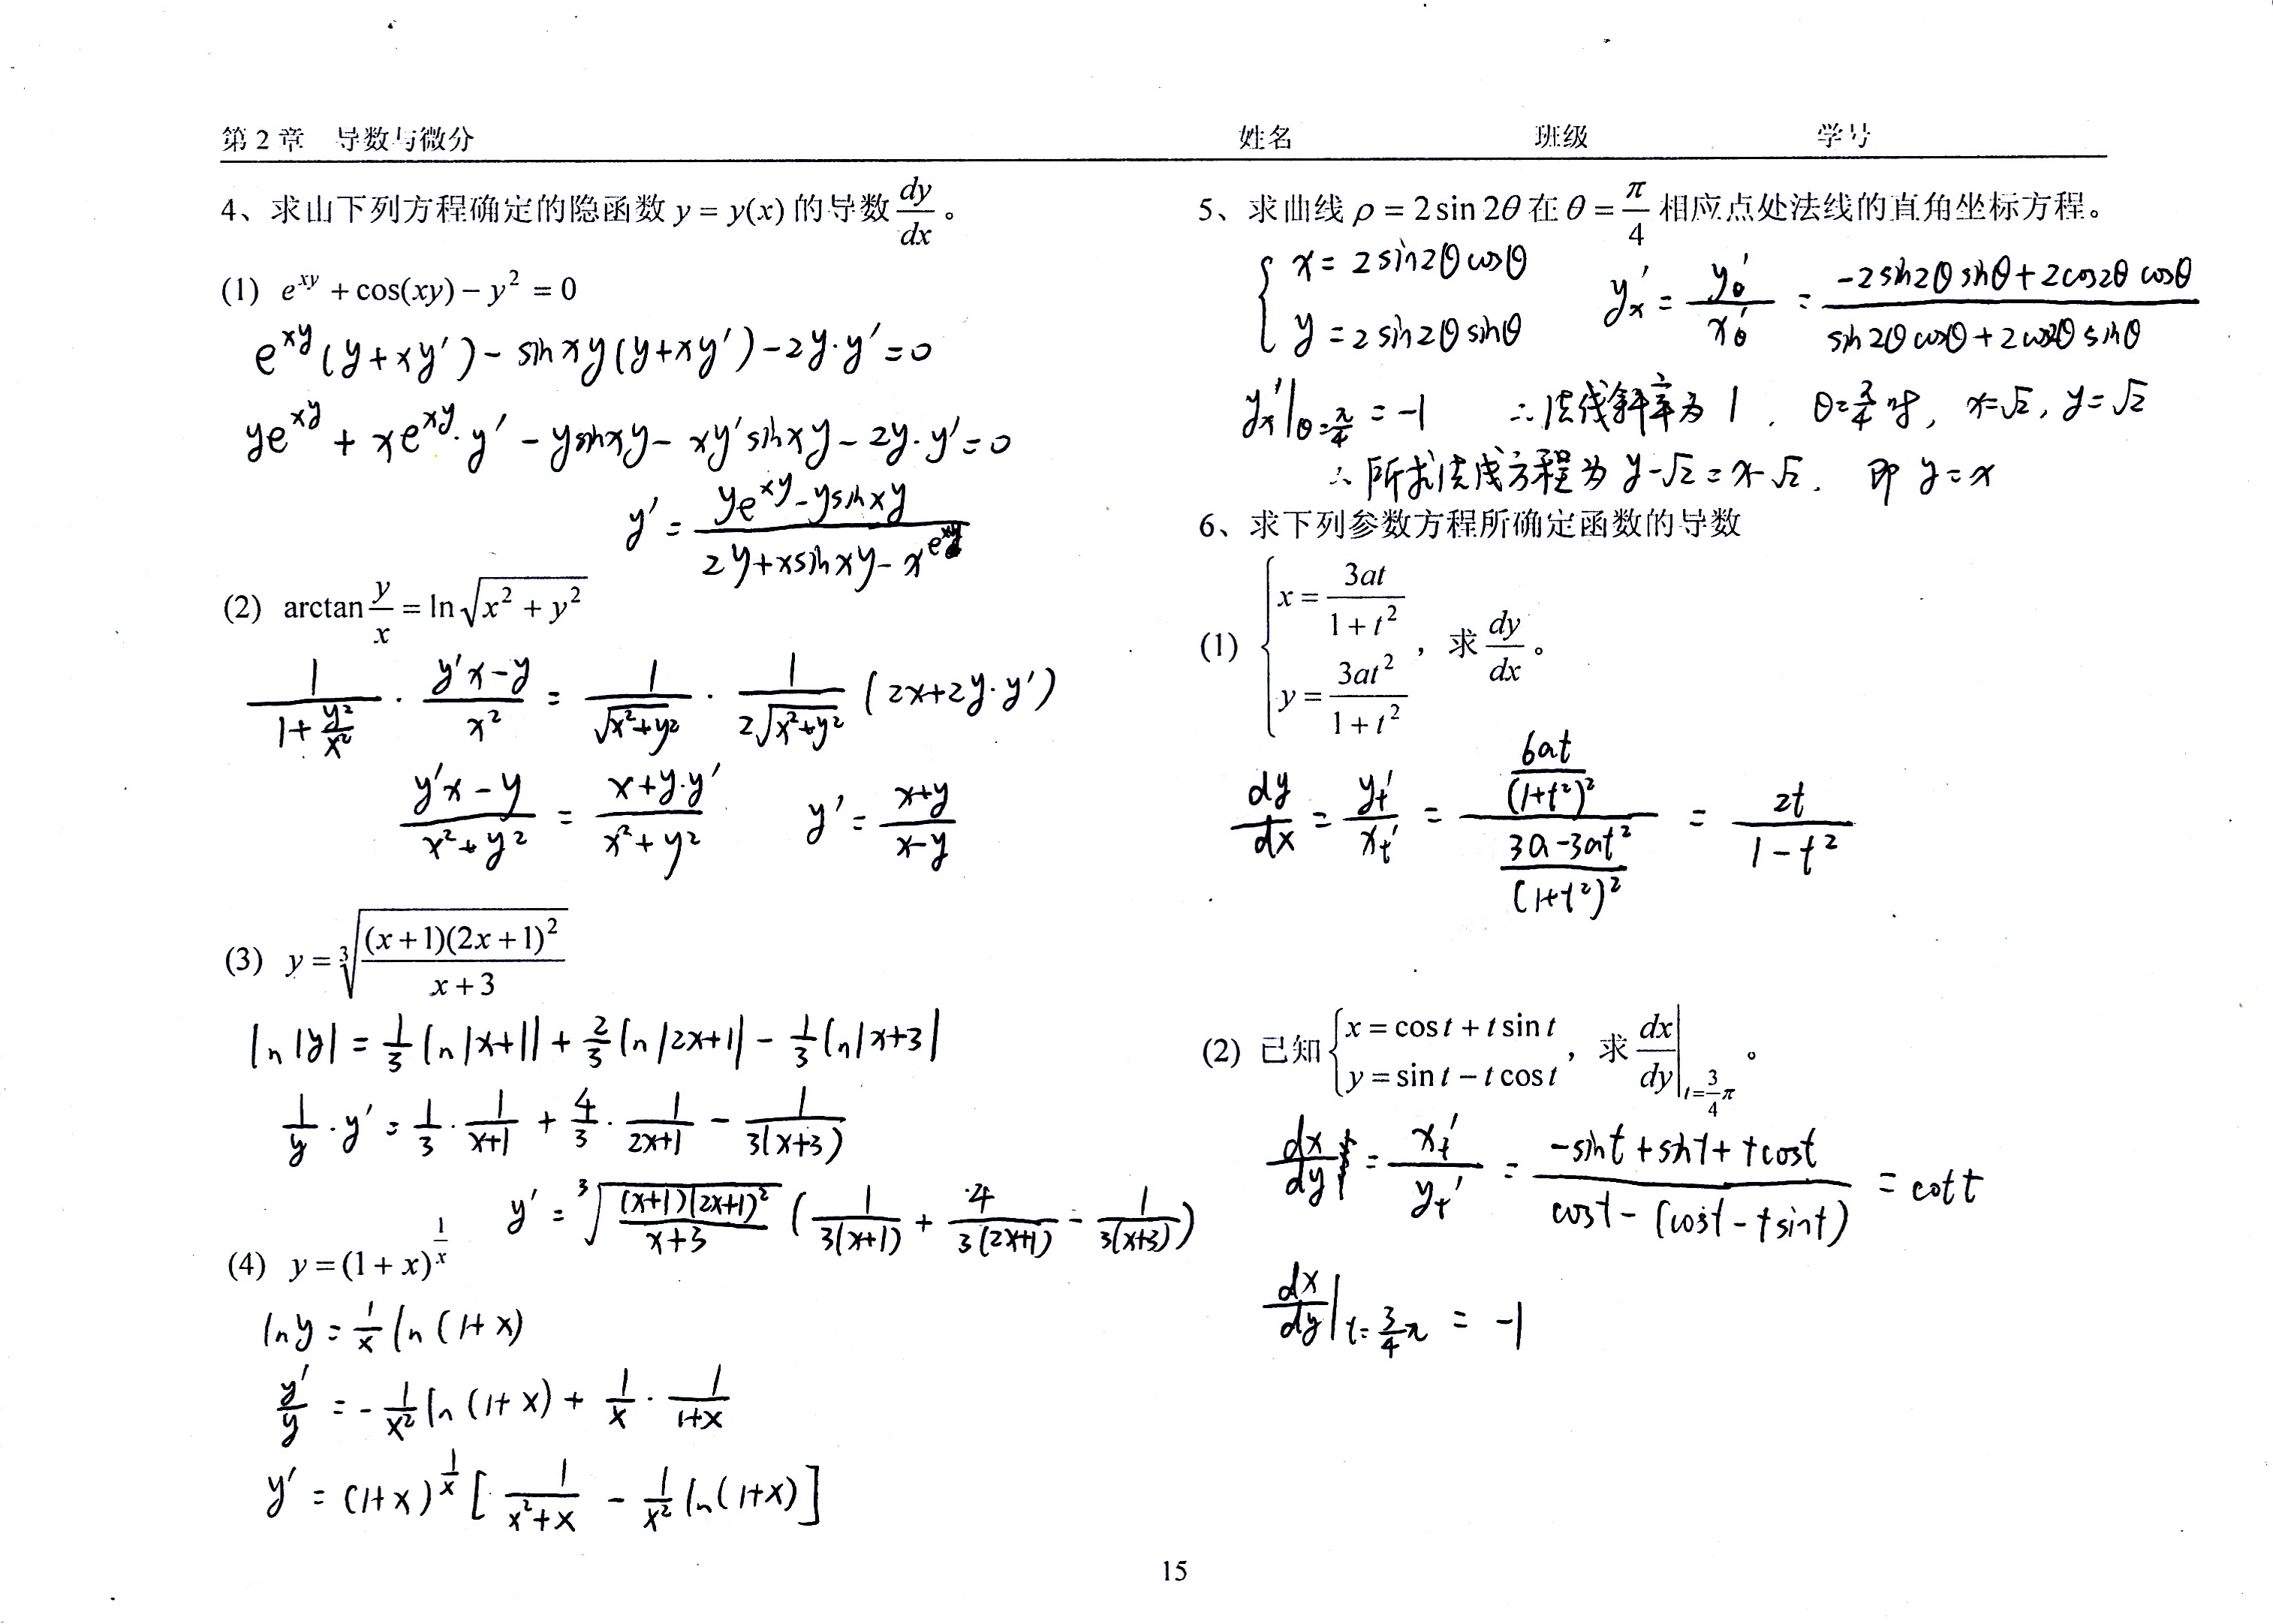 第 2 章 导数与微分
姓名 班级 学号
4、求由下列方程确定的隐函数 y = y(x) 的导数 dy/dx 。
(1) e^{xy} + cos(xy) − y² = 0
e^{xy}(y+xy') − sin xy(y+xy') − 2y·y' = 0
ye^{xy} + xe^{xy}·y' − y sin xy − xy' sin xy − 2y·y' = 0
y' = (ye^{xy} − y sin xy) / (2y + x sin xy − xe^{xy})
(2) arctan y/x = ln √(x² + y²)
1/(1+y²/x²) · (y'x−y)/x² = 1/√(x²+y²) · 1/(2√(x²+y²)) (2x+2y·y')
(y'x−y)/(x²+y²) = (x+y·y')/(x²+y²) y' = (x+y)/(x−y)
(3) y = ∛((x+1)(2x+1)²/(x+3))
ln|y| = 1/3 ln|x+1| + 2/3 ln|2x+1| − 1/3 ln|x+3|
1/y · y' = 1/3 · 1/(x+1) + 4/3 · 1/(2x+1) − 1/(3(x+3))
y' = ∛((x+1)(2x+1)²/(x+3)) (1/(3(x+1)) + 4/(3(2x+1)) − 1/(3(x+3)))
(4) y = (1+x)^{1/x}
ln y = 1/x ln(1+x)
y'/y = −1/x² ln(1+x) + 1/x · 1/(1+x)
y' = (1+x)^{1/x} [1/(x²+x) − 1/x² ln(1+x)]
5、求曲线 ρ = 2 sin 2θ 在 θ = π/4 相应点处法线的直角坐标方程。
{ x = 2 sin2θ cosθ
y = 2 sin2θ sinθ
y'x = y'θ/x'θ = (−2 sin2θ sinθ + 2cos2θ cosθ)/(sin2θ cosθ + 2cos2θ sinθ)
y'x|θ=π/4 = −1 ∴法线斜率为 1 . θ=π/4 时, x=√2, y=√2
∴ 所求法线方程为 y−√2 = x−√2. 即 y=x
6、求下列参数方程所确定函数的导数
(1) { x = 3at/(1+t²)
y = 3at²/(1+t²) ，求 dy/dx 。
dy/dx = y't/x't = (6at/(1+t²)²)/((3a−3at²)/(1+t²)²) = 2t/(1−t²)
(2) 已知 { x = cos t + t sin t
y = sin t − t cos t ，求 dx/dy|t=3/4 π 。
dx/dy = x't/y't = (−sint + sint + tcost)/(cost − (cost − tsint)) = cot t
dx/dy|t=3/4 π = −1
15